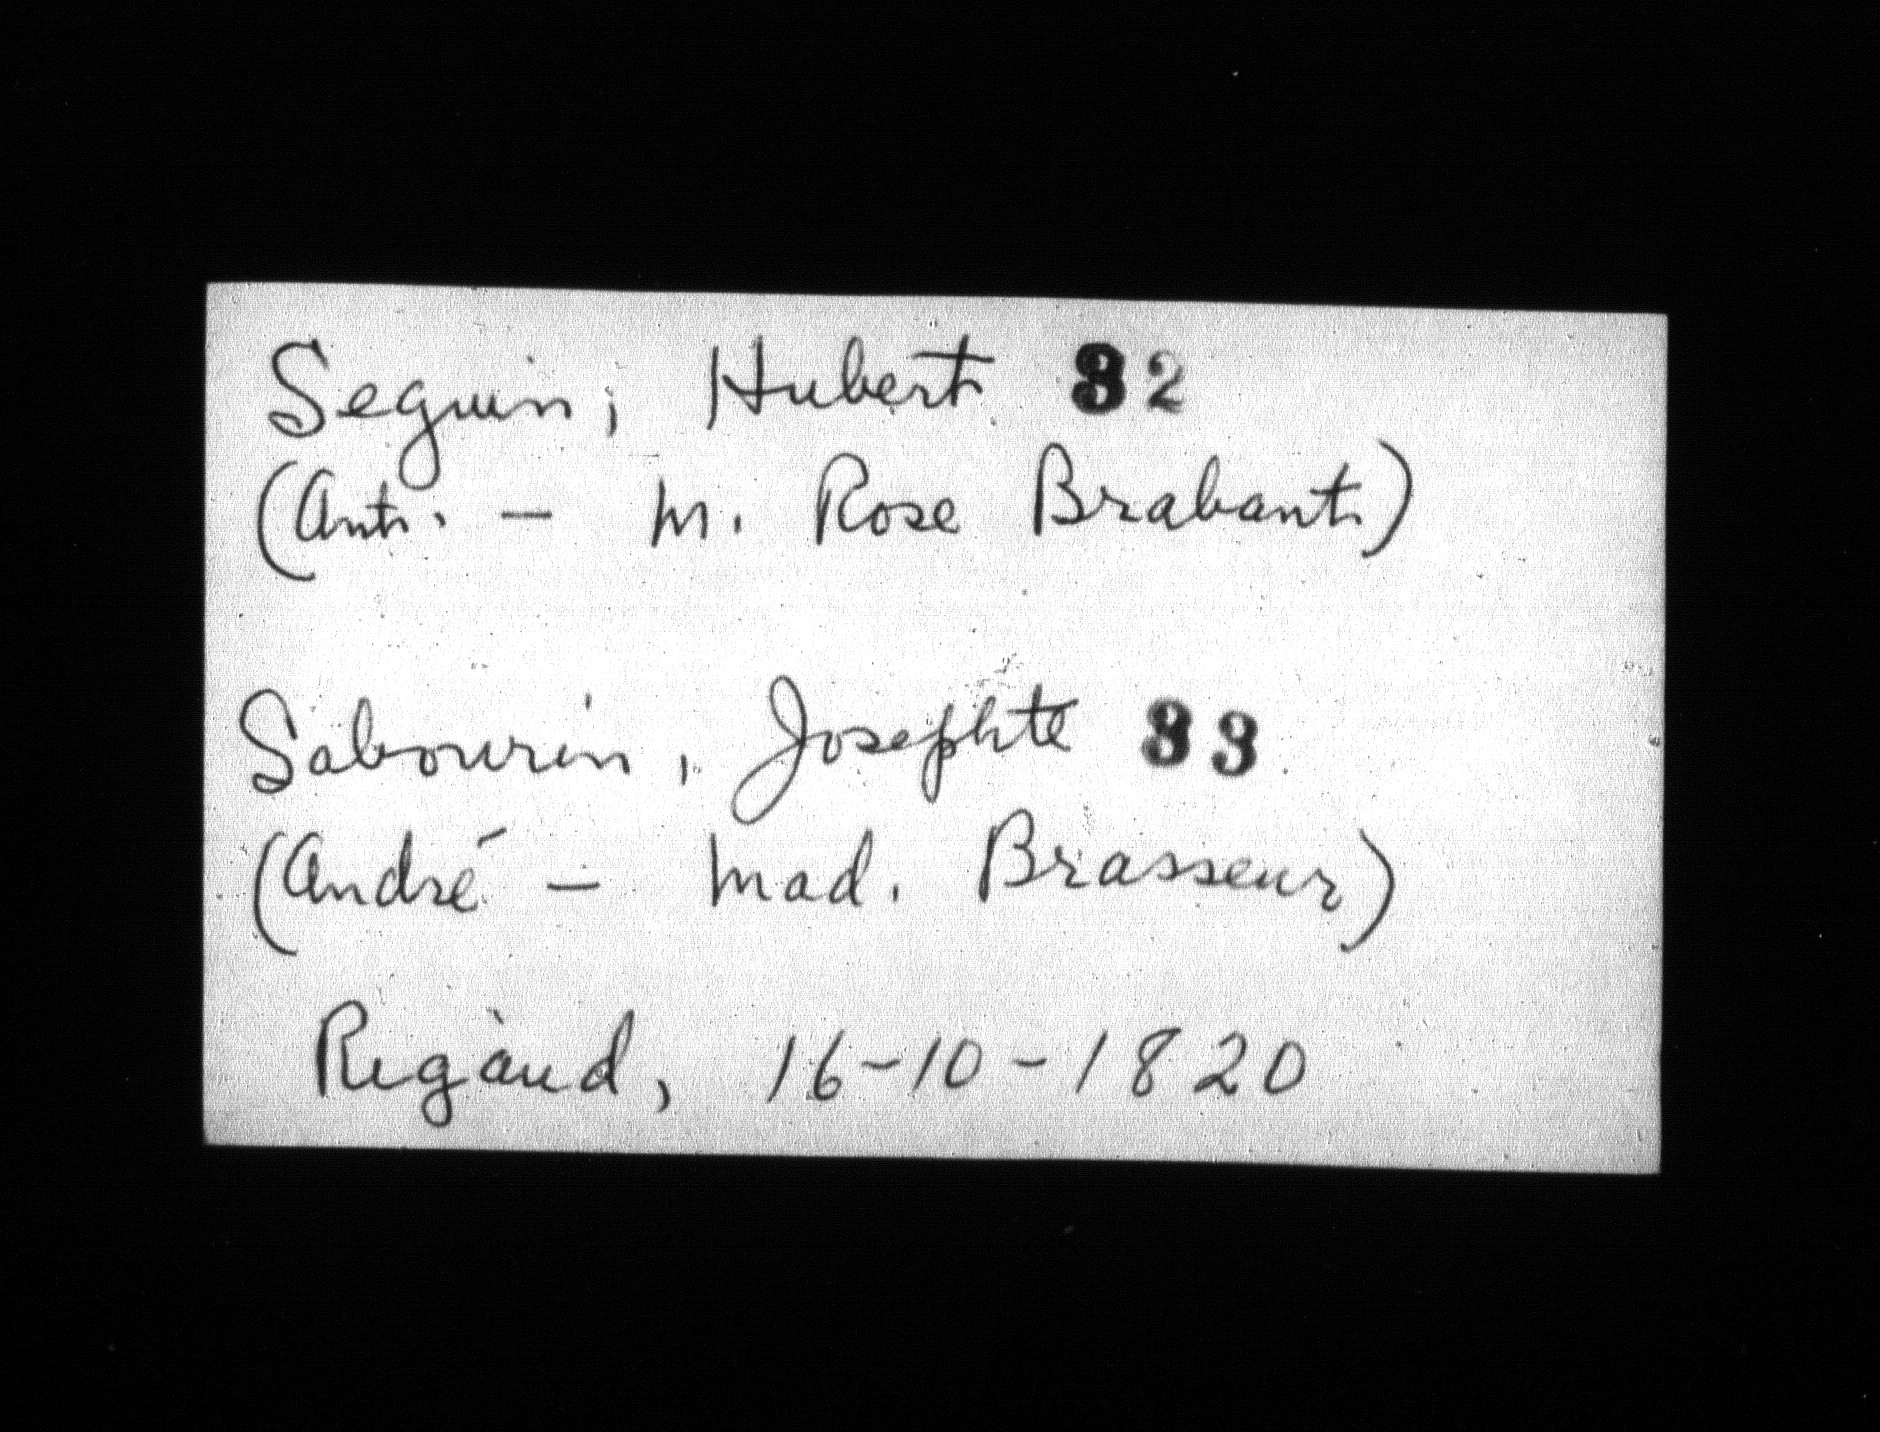 Seguin, Hubert 32
(Ant. - M. Rose Brabant)
Sabourin, Josephte 33
(André - Mad. Brasseur)
Rigaud, 16-10-1820